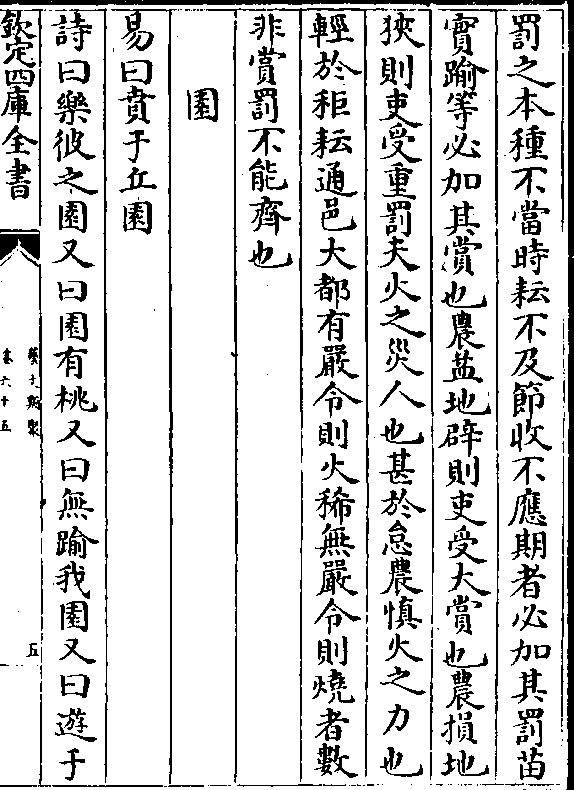 罰之本種不當時耘不及節收不應期者必加其罰苗
實踰等必加其賞也農益地辟則吏受大賞也農損地
狹則吏受重罰夫火之災人也甚於怠農慎火之力也
輕於秬耘通邑大都有嚴令則火稀無嚴令則燒者數
非賞罰不能齊也
園
易曰賁于丘園
詩曰樂彼之園又曰園有桃又曰無踰我園又曰遊于
欽定四庫全書
藝文類聚
卷六十五
五